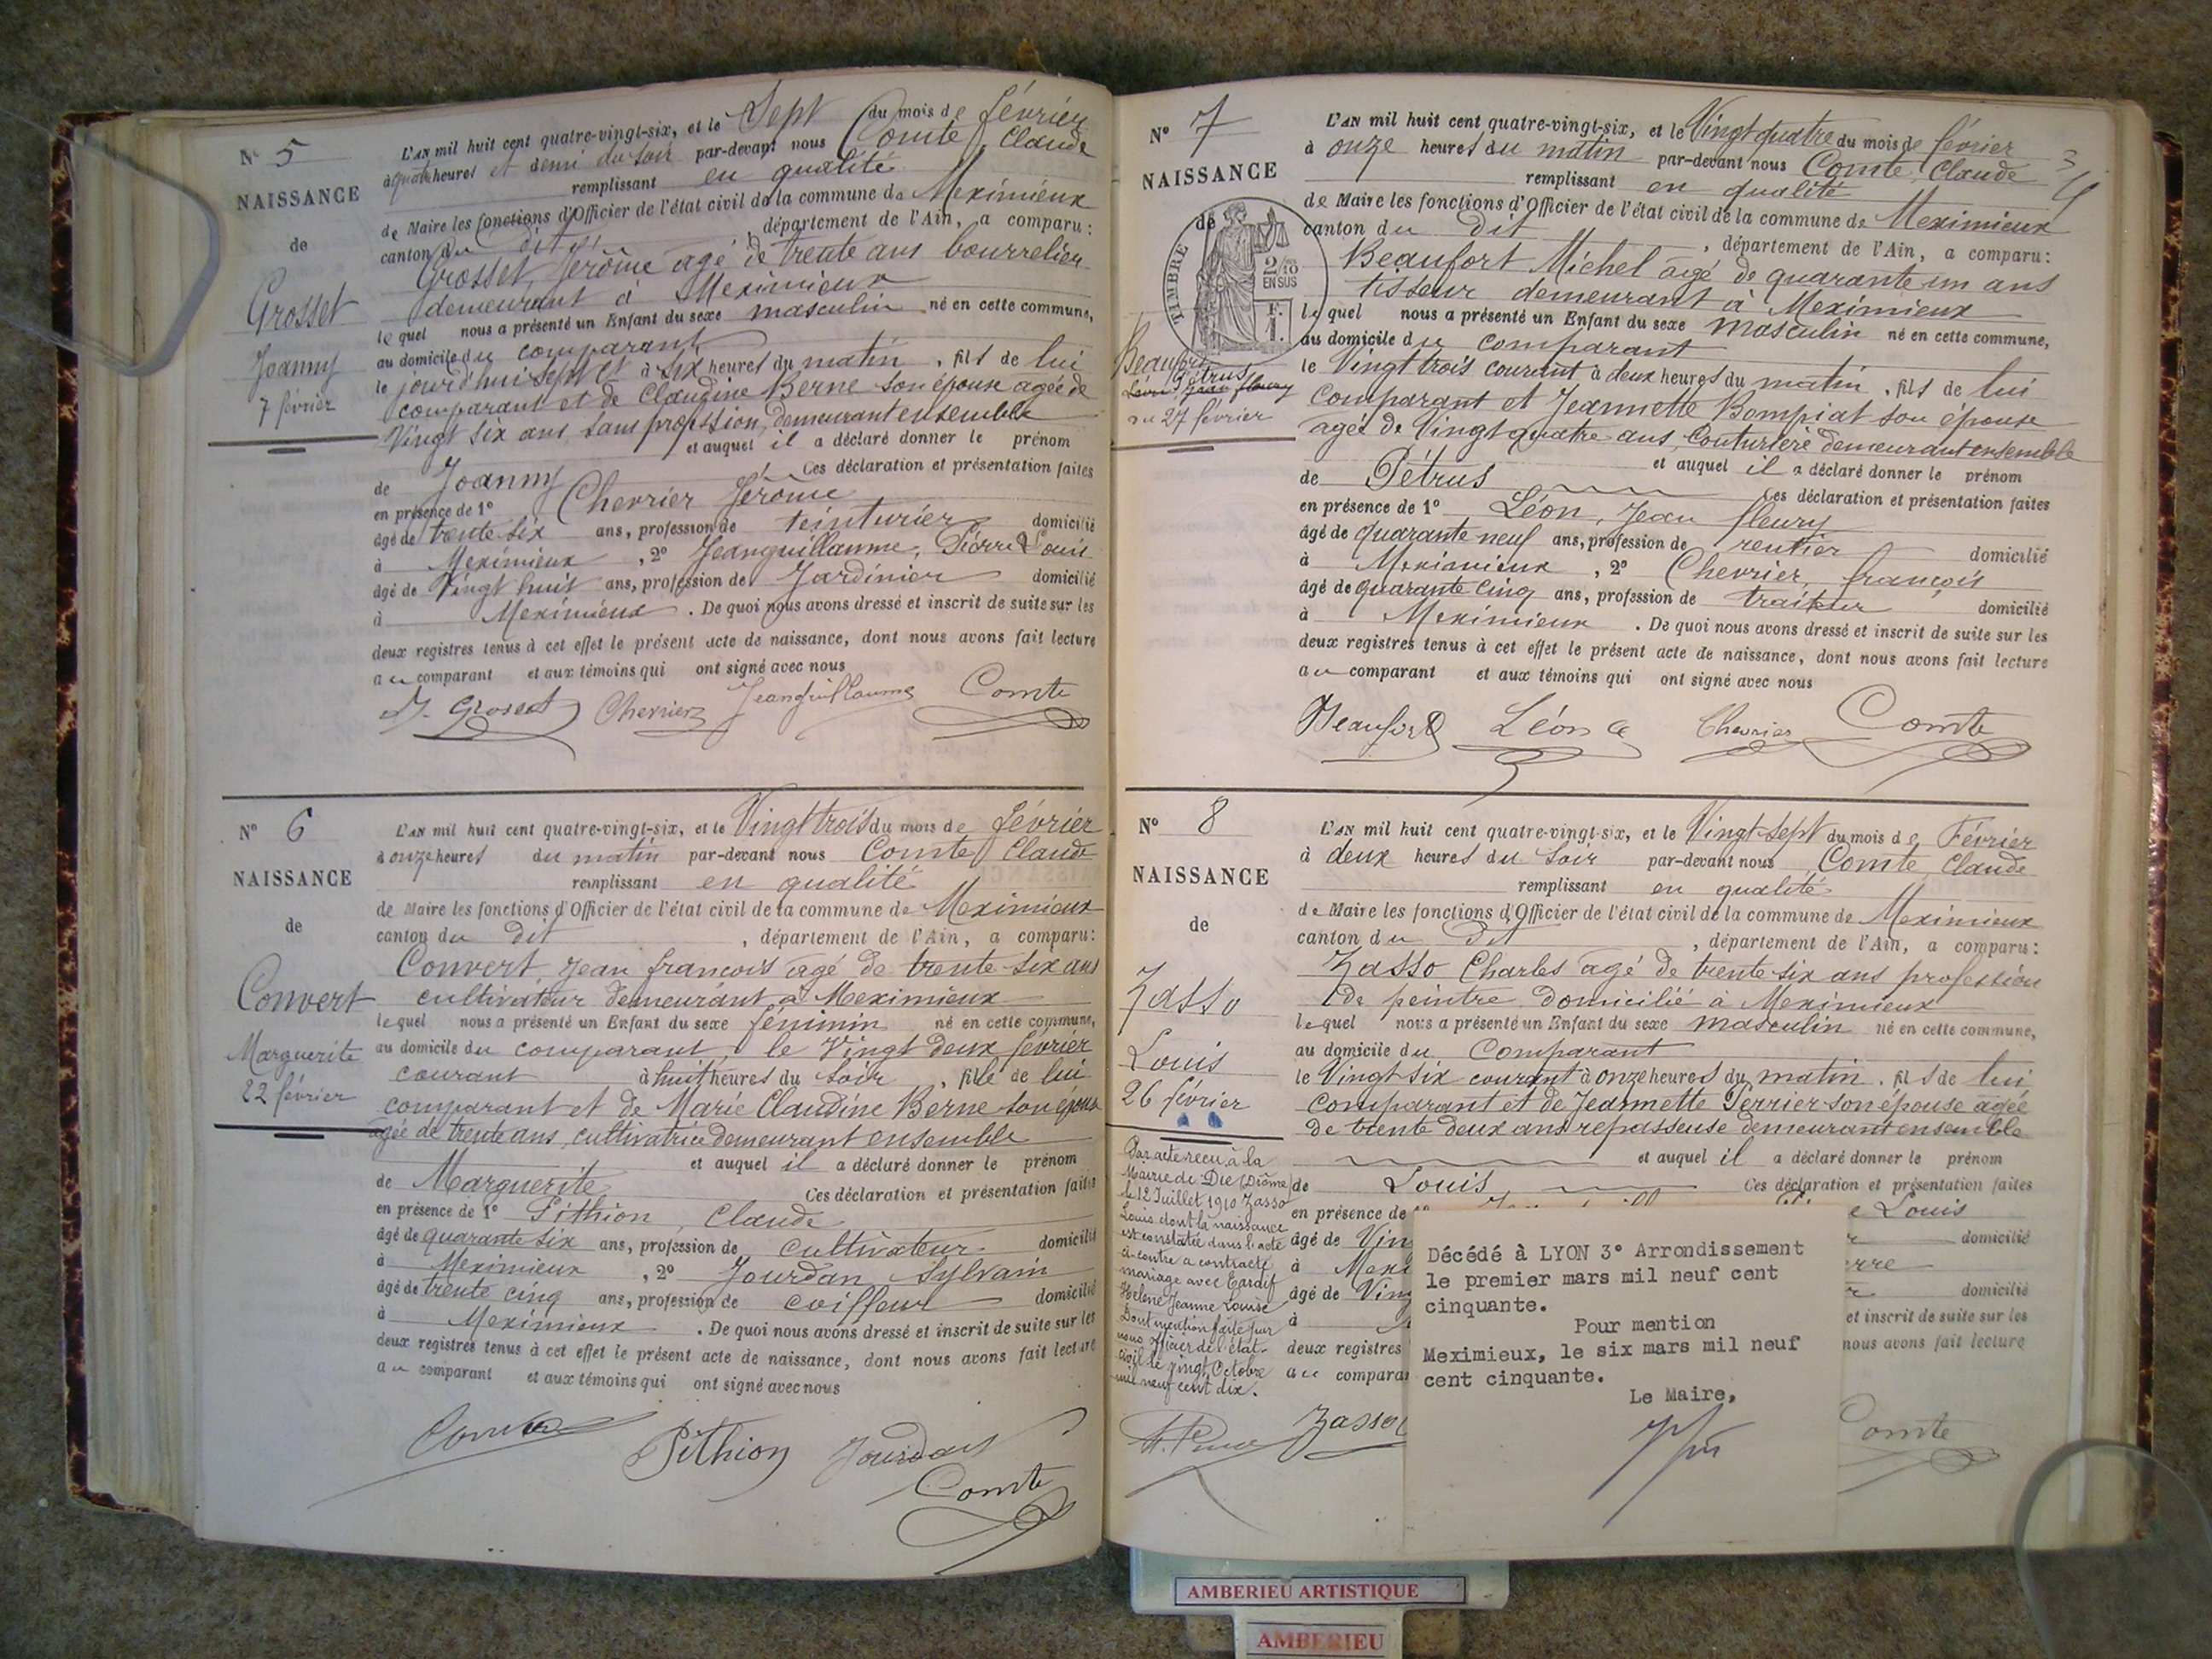 N° 5
NAISSANCE
de
Grosset
Joanny
7 février
L'AN mil huit cent quatre-vingt-six, et le Sept du mois de février
à quatre heures et demi du soir par-devant nous Comte Claude
remplissant en qualité
de Maire les fonctions d'Officier de l'état civil de la commune de Meximieux
canton du dit, département de l'Ain, a comparu:
Grosset, Jérôme agé de trente ans bourrelier
demeurant à Meximieux
lequel nous a présenté un Enfant du sexe masculin né en cette commune,
au domicile du comparant
le jourd'hui sept et à six heures du matin, fils de lui
comparant et de Claudine Berne son épouse agée de
Vingt six ans, sans profession, demeurant ensemble
et auquel il a déclaré donner le prénom
de Joanny Ces déclaration et présentation faites
en présence de 1° Chevrier Jérôme
âgé de trente six ans, profession de teinturier domicilié
à Meximieux, 2° Jeanguillaume, Pierre Louis
âgé de Vingt huit ans, profession de Jardinier domicilié
à Meximieux. De quoi nous avons dressé et inscrit de suite sur les
deux registres tenus à cet effet le présent acte de naissance, dont nous avons fait lecture
au comparant et aux témoins qui ont signé avec nous
J. Grosset Chevrier Jeanguillaume Comte
N° 6
NAISSANCE
de
Convert
Marguerite
22 février
L'AN mil huit cent quatre-vingt-six, et le Vingt trois du mois de février
à onze heures du matin par-devant nous Comte Claude
remplissant en qualité
de Maire les fonctions d'Officier de l'état civil de la commune de Meximieux
canton du dit, département de l'Ain, a comparu:
Convert, Jean françois agé de trente six ans
cultivateur demeurant à Meximieux
lequel nous a présenté un Enfant du sexe féminin né en cette commune,
au domicile du comparant, le Vingt deux février
courant à huit heures du soir, fille de lui
comparant et de Marie Claudine Berne son épouse
agée de trente ans, cultivatrice demeurant ensemble
et auquel il a déclaré donner le prénom
de Marguerite Ces déclaration et présentation faites
en présence de 1° Pithion, Claude
âgé de quarante six ans, profession de cultivateur domicilié
à Meximieux, 2° Jourdan Sylvain
âgé de trente cinq ans, profession de coiffeur domicilié
à Meximieux. De quoi nous avons dressé et inscrit de suite sur les
deux registres tenus à cet effet le présent acte de naissance, dont nous avons fait lecture
au comparant et aux témoins qui ont signé avec nous
Pithion Jourdan
Comte
N° 7
NAISSANCE
de
TIMBRE
2/10
EN SUS
F.
1.
Beaufort
Pétrus
Léon, Jean fleury
du 27 février
L'AN mil huit cent quatre-vingt-six, et le Vingt quatre du mois de février
à onze heures du matin par-devant nous Comte Claude
remplissant en qualité
de Maire les fonctions d'Officier de l'état civil de la commune de Meximieux
canton du dit, département de l'Ain, a comparu:
Beaufort Michel âgé de quarante un ans
tisseur demeurant à Meximieux
lequel nous a présenté un Enfant du sexe masculin né en cette commune,
au domicile du comparant
le Vingt trois courant à deux heures du matin, fils de lui
comparant et Jeannette Bompiat son épouse
agée de Vingt quatre ans, Couturière demeurant ensemble
et auquel il a déclaré donner le prénom
de Pétrus Ces déclaration et présentation faites
en présence de 1° Léon, Jean fleury
âgé de quarante neuf ans, profession de rentier domicilié
à Meximieux, 2° Chevrier, françois
âgé de quarante cinq ans, profession de traiteur domicilié
à Meximieux. De quoi nous avons dressé et inscrit de suite sur les
deux registres tenus à cet effet le présent acte de naissance, dont nous avons fait lecture
au comparant et aux témoins qui ont signé avec nous
Beaufort Léon Chevrier Comte
N° 8
NAISSANCE
de
Zasso
Louis
26 février
Par acte reçu à la
Mairie de Die (Drôme)
le 12 Juillet 1910 Zasso
Louis dont la naissance
est constatée dans l'acte
ci-contre a contracté
mariage avec Tardif
Hélène Jeanne Louise
Dont mention faite par
nous Officier de l'état-
civil le vingt Octobre
mil neuf cent dix.
L'AN mil huit cent quatre-vingt-six, et le Vingt-sept du mois de Février
à deux heures du soir par-devant nous Comte, Claude
remplissant en qualité
de Maire les fonctions d'Officier de l'état civil de la commune de Meximieux
canton du Dit, département de l'Ain, a comparu:
Zasso Charles âgé de trente six ans profession
de peintre domicilié à Meximieux
lequel nous a présenté un Enfant du sexe masculin né en cette commune,
au domicile du Comparant
le Vingt six courant à onze heures du matin, fils de lui
comparant et de Jeannette Perrier son épouse agée
de trente deux ans repasseuse demeurant ensemble
et auquel il a déclaré donner le prénom
de Louis Ces déclaration et présentation faites
en présence de e Louis
âgé de Vin domicilié
à Mexi rre
âgé de Ving domicilié
à et inscrit de suite sur les
deux registres nous avons fait lecture
au compara
Zasso Comte
Décédé à LYON 3° Arrondissement
le premier mars mil neuf cent
cinquante.
Pour mention
Meximieux, le six mars mil neuf
cent cinquante.
Le Maire,
AMBERIEU ARTISTIQUE
AMBERIEU